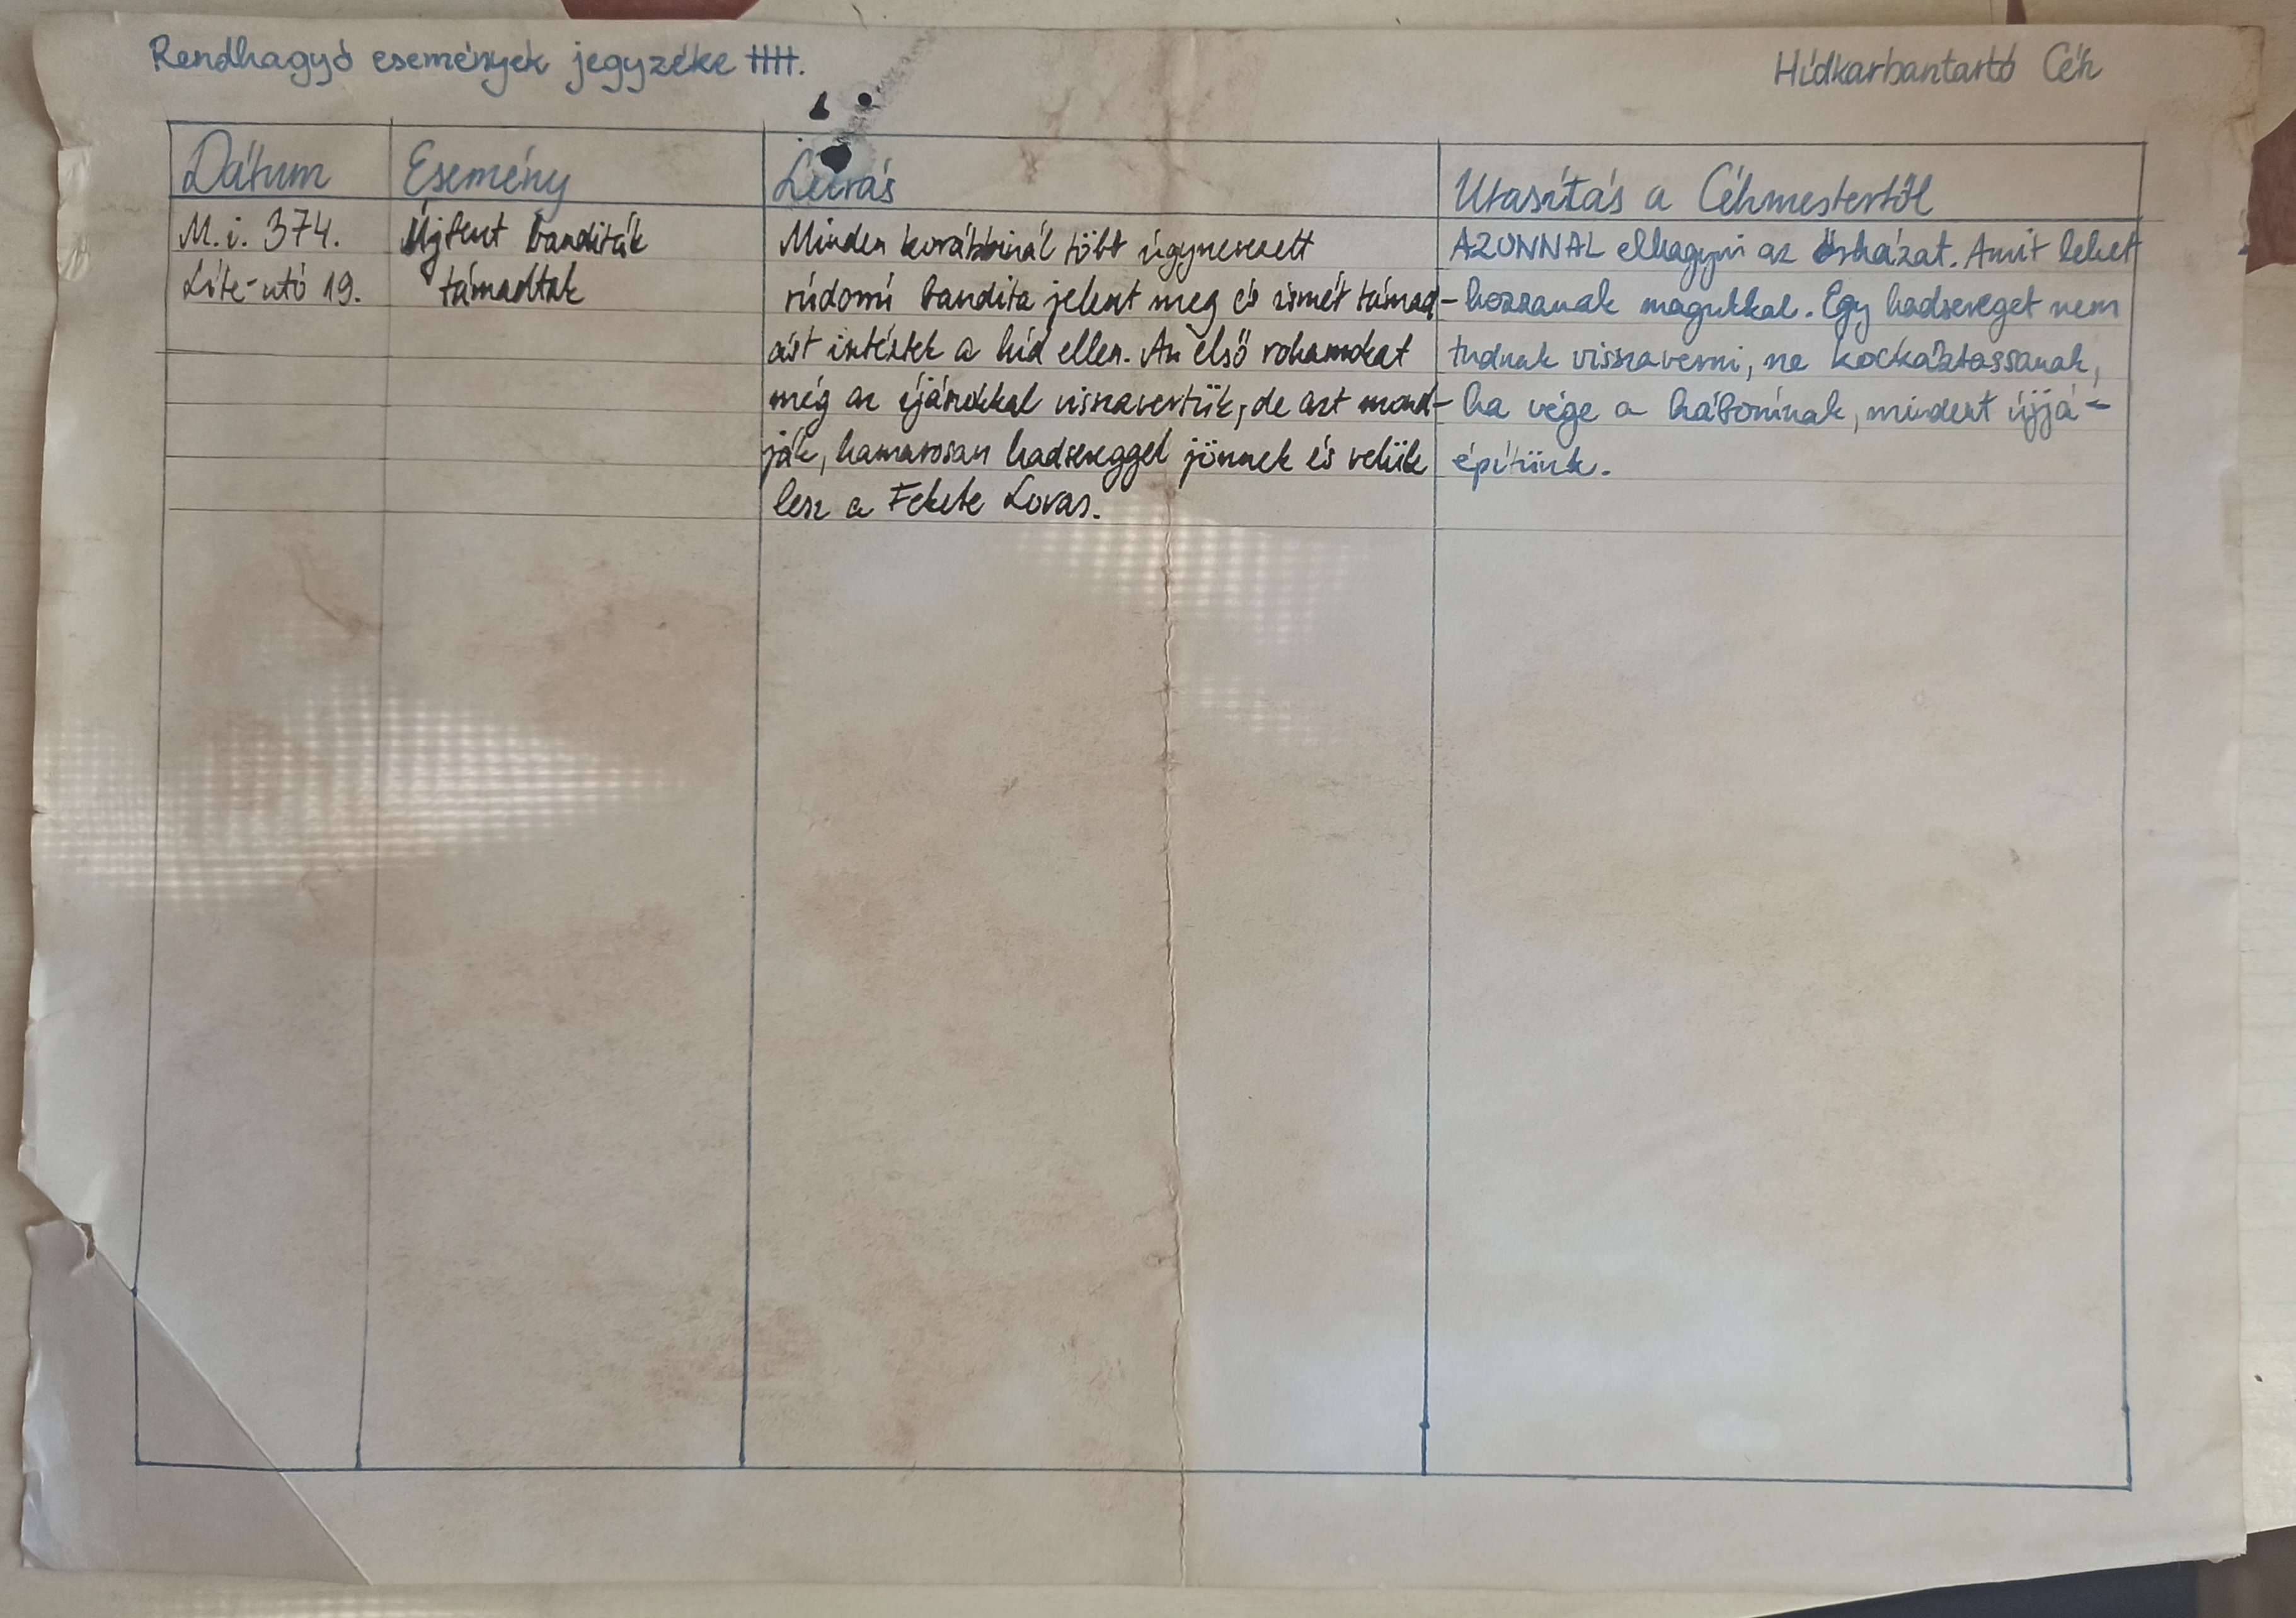 Rendhagyó események jegyzéke ††††.
Hídkarbantartó Céh
Dátum
Esemény
Leírás
Utasítás a Céhmestertől
M. i. 374.
19.
Újfent banditák
támadtak
Minden korábbinál több úgynevezett
rúdomi bandita jelent meg és ismét támad-
ást intéztek a híd ellen. Az első rohamokat
még az íjászokkal visszavertük, de azt mond-
ják, hamarosan hadsereggel jönnek és velük
lesz a Fekete Lovas.
AZONNAL elhagyni az őrházat. Amit lehet
hozzanak magukkal. Egy hadsereget nem
tudnak visszaverni, ne kockáztassanak,
ha vége a háborúnak, mindent újjá-
építünk.